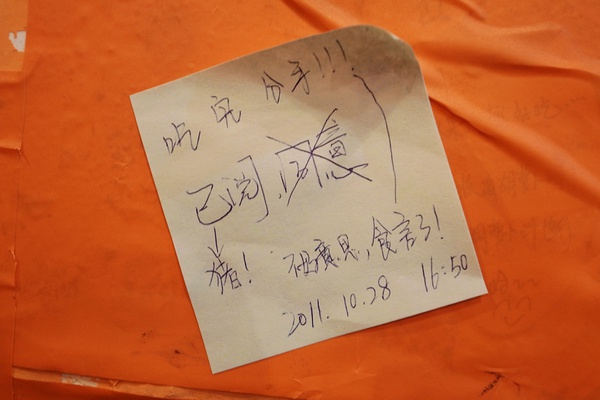 吃完 分手!!!
已阅,同意
猪! 食言了!
2011.10.28 16:50